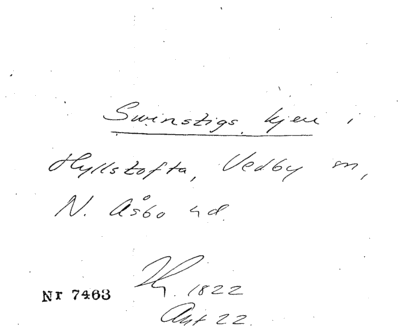 Swinstigs kjeu i
Hyllstofta, Vedby sn,
N. Åsbo hd.
1822
Akt 22.
Nr 7463